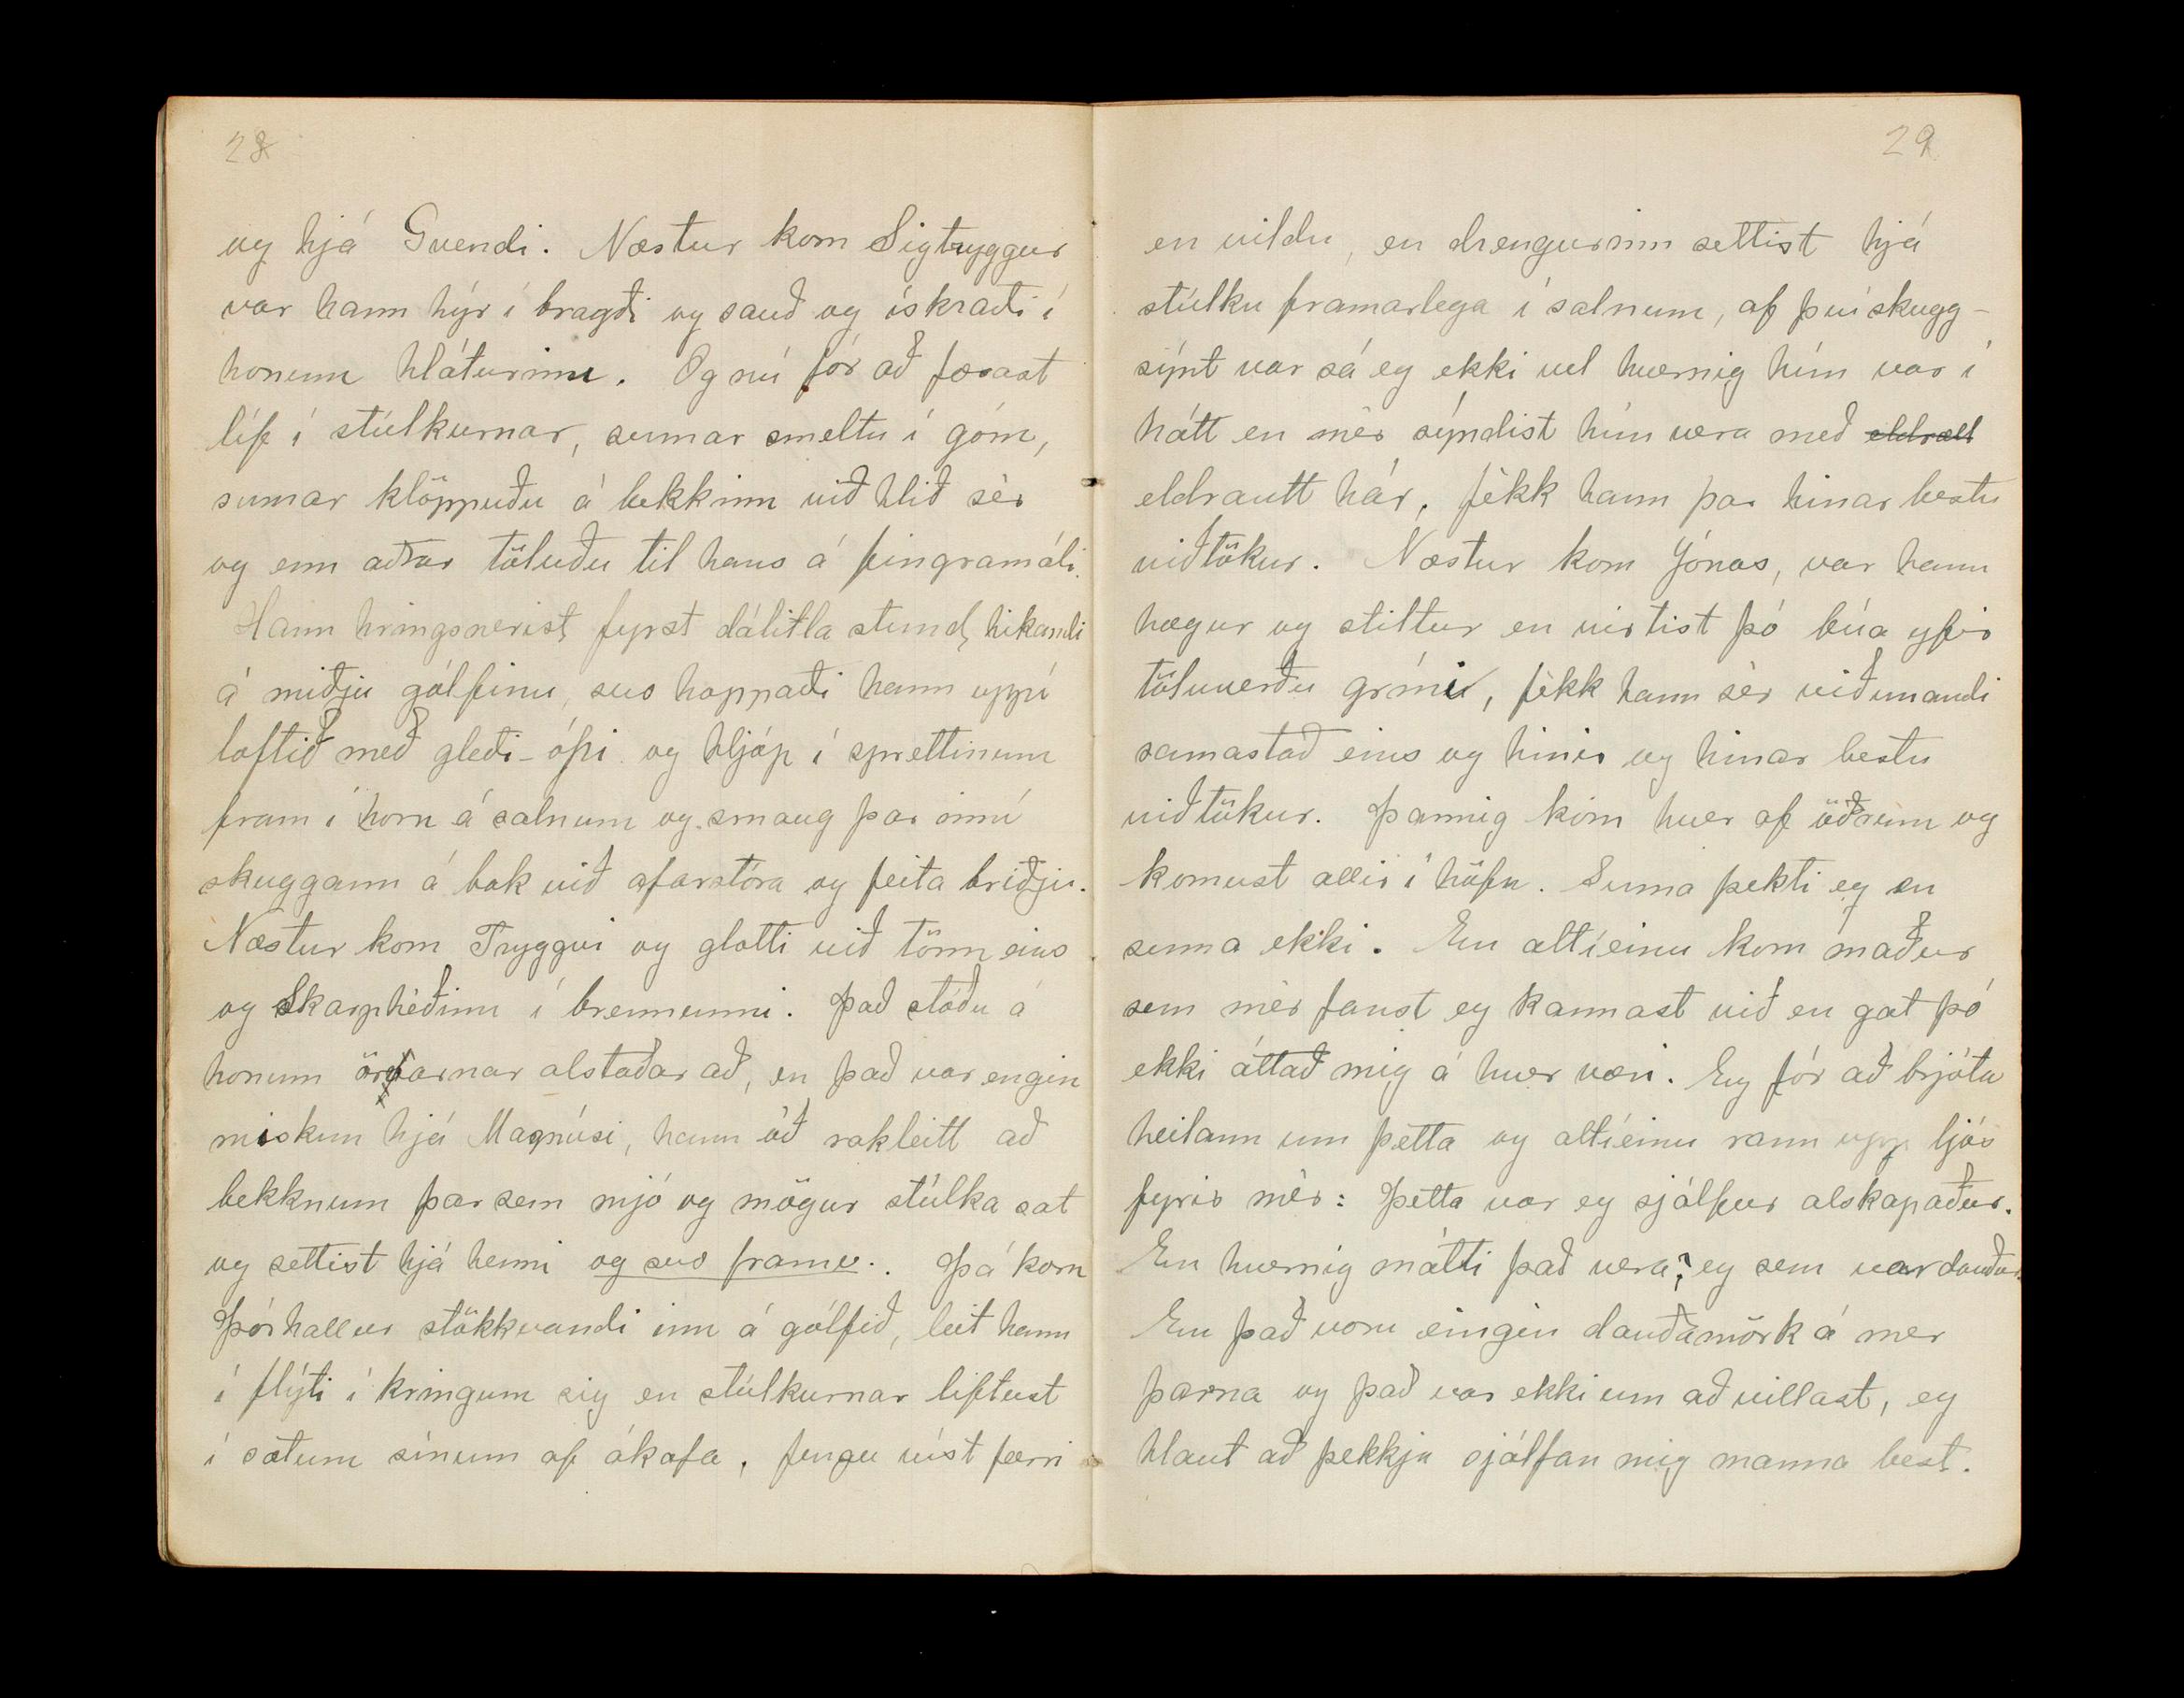 28
og hjá Gvendi. Næstur kom Sigtryggur
var hann hýr í bragði og sauð og ískraði í
honum hláturinn. Og nú fór að færast
líf í stúlkurnar, sumar smeltu í góm,
sumar klöppuðu á bekkinn við hlið sér
og enn aðrar töluðu til hans á fingramáli.
Hann hringsnerist fyrst dálitla stund, hikandi
á miðju gólfinu, svo hoppaði hann uppí
loftið með gleði-ópi og hljóp í sprettinum
fram í horn á salnum og smaug þar inní
skuggann á bak við afarstóra og feita briðju.
Næstur kom Tryggvi og glotti við tönn eins
og Skarphéðinn í brennunni. Það stóðu á
honum örvarnar alstaðar að, en það var engin
miskun hjá Magnúsi, hann óð rakleitt að
bekknum þar sem mjó og mögur stúlka sat
og settist hjá henni og svo framv.. Þá kom
Þórhallur stökkvandi inn á gólfið, leit hann
í flýti í kringum sig en stúlkurnar liftust
í sætum sínum af ákafa, fengu víst færri
29
en vildu, en drengurinn settist hjá
stúlku framarlega í salnum, af því skugg-
sýnt var sá eg ekki vel hvernig hún var í
hátt en mér sýndist hún vera með eldrætt
eldrautt hár, fékk hann þar hinar bestu
viðtökur. Næstur kom Jónas, var hann
hægur og stiltur en virtist þó búa yfir
töluverðu gríni, fékk hann sér viðunandi
samastað eins og hinir og hinar bestu
viðtökur. Þannig kom hver af öðrum og
komust allir í höfn. Suma þekti eg en
suma ekki. En altíeinu kom maður
sem mér fanst eg kannast við en gat þó
ekki áttað mig á hver væri. Eg fór að brjóta
heilann um þetta og altíeinu rann upp ljós
fyrir mér: Þetta var eg sjálfur alskapaður.
En hvernig mátti það vera? eg sem var dauður.
En það voru eingin dauðamörk á mer
þarna og það var ekki um að villast, eg
hlaut að þekkja sjálfan mig manna best.